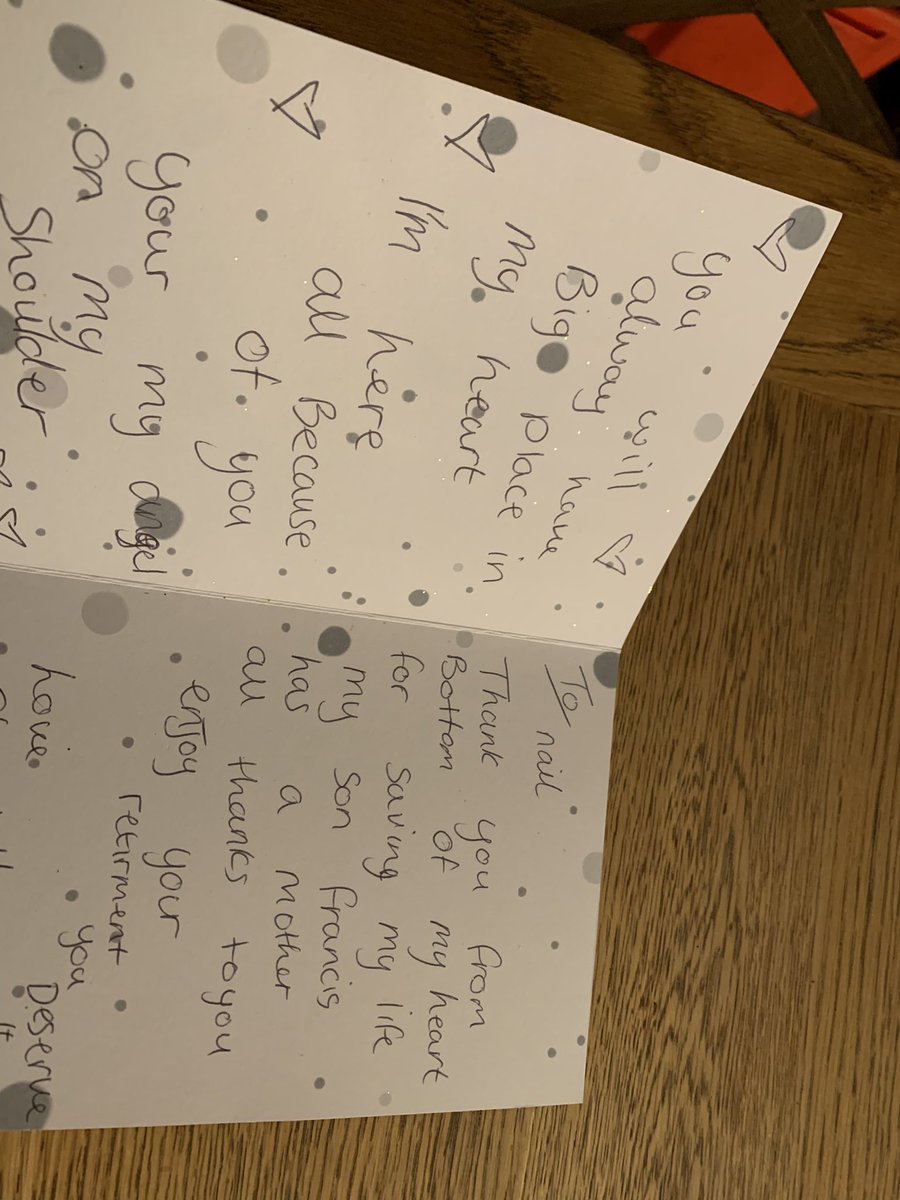 you will
alway have
Big place in
my heart
I'm here
all Because
of you
your my angel
on my
Shoulder
To nail
Thank you from
Bottom of my heart
for saving my life
my son francis
has a mother
all thanks toyou
enjoy your
retirment
you Deserve
It
Love